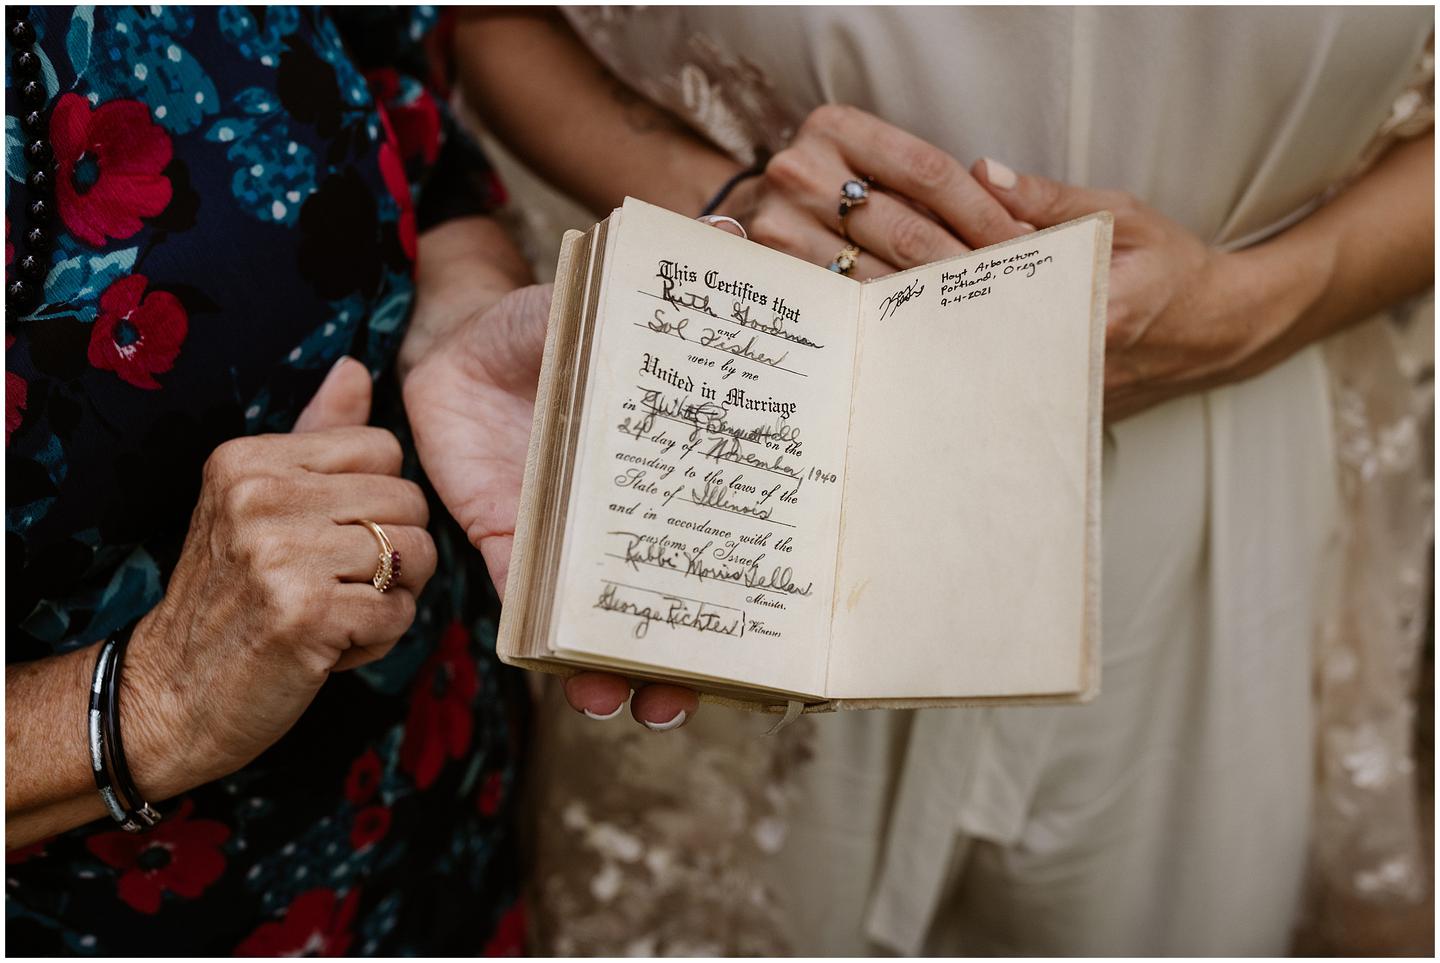 This Certifies that
Ruth Goodman
and
Sol Fisher
were by me
United in Marriage
in Banquet Hall on the
24 day of November, 1940
according to the laws of the
State of Illinois
and in accordance with the
customs of Israel,
Rabbi Morris Teller
Minister.
George Richter } Witnesses
Hoyt Arboretum
Portland, Oregon
9-4-2021